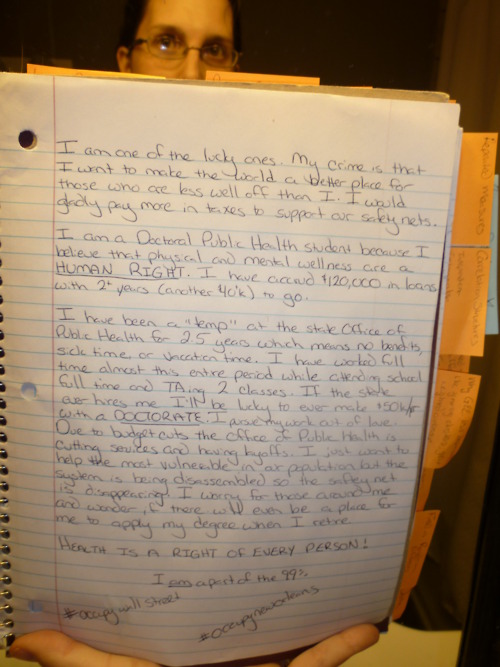 I am one of the lucky ones. My crime is that
I want to make the world a better place for
those who are less well off than I. I would
gladly pay more in taxes to support our safety nets.
I am a Doctoral Public Health student because I
believe that physical and mental wellness are a
HUMAN RIGHT. I have accrued $120,000 in loans
with 2+ years (another 40k) to go.
I have been a "temp" at the state Office of
Public Health for 2.5 years which means no benefits,
sick time, or vacation time. I have worked full
time almost this entire period while attending school
full time and TAing 2 classes. If the state
ever hires me I'll be lucky to ever make $50k/yr
with a DOCTORATE. I pursue my work out of love.
Due to budget cuts the Office of Public Health is
cutting services and having layoffs. I just want to
help the most vulnerable in our population but the
system is being disassembled so the saftey net
is disappearing. I worry for those around me
and wonder if there will even be a place for
me to apply my degree when I retire.
HEALTH IS A RIGHT OF EVERY PERSON!
I am a part of the 99%
#occupywallstreet
#occupyneworleans